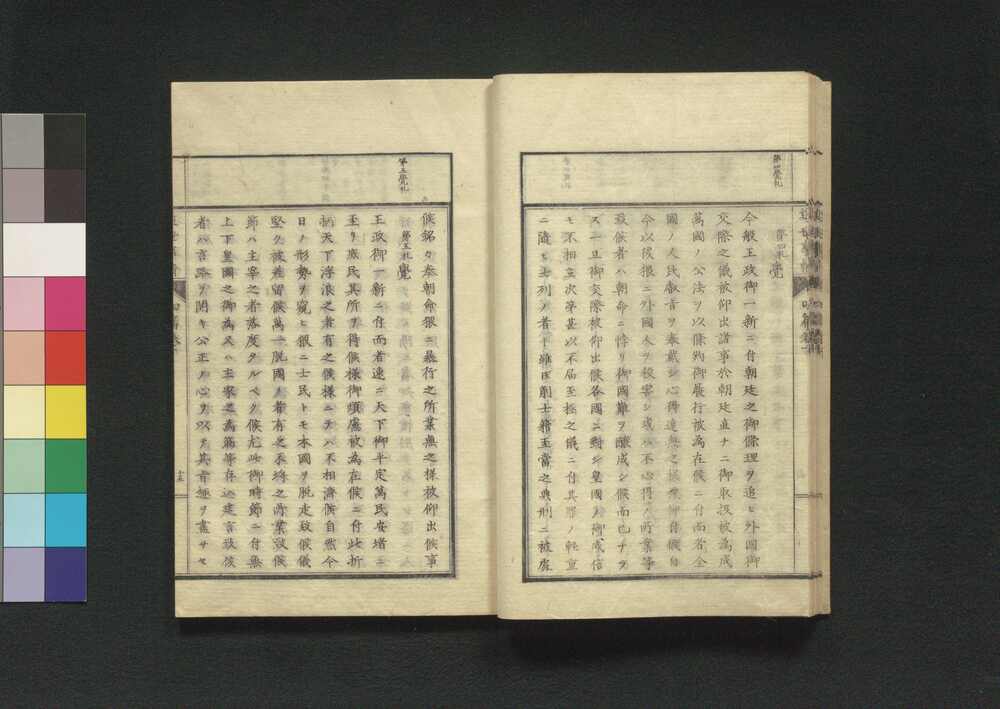 第四覺札
第四札 覺
今般王政御一新ニ付朝廷之御條理ヲ追ヒ外國御
交際之儀被仰出諸事於朝廷直チニ御取扱被為成
萬國ノ公法ヲ以條約御履行被為在候ニ付而者全
國ノ人民叡旨ヲ奉戴シ心得違無之様被仰付候自
今以後猥ニ外國人ヲ殺害シ或ハ不心得ノ所業等
致候者ハ朝命ニ悖リ御國難ヲ醸成シ候而已ナラ
ス一旦御交際被仰出候各國ニ對シ皇國ノ御威信
モ不相立次第甚以不届至極之儀ニ付其罪ノ軽重
ニ随ヒ士列ノ者ト雖𪜈削士籍至當之典刑ニ被處
第五覺札
候銘々奉朝命猥ニ暴行之所業無之様被仰出候事
第五札 覺
王政御一新ニ付而者速ニ天下御平定萬民安堵ニ
至リ庶民其所ヲ得候様御煩慮被為在候ニ付此折
柄天下浮浪之者有之候様ニテハ不相濟候自然今
日ノ形勢ヲ窺ヒ猥ニ士民トモ本國ヲ脱走致候儀
堅ク被差留候萬一脱國ノ者有之不埒之所業致候
節ハ主宰之者落度タルベク候尤此御時節ニ付無
上下皇國之御為又ハ主家之為筋等存込建言致候
者ハ言路ヲ開キ公正ノ心ヲ以テ其旨趣ヲ盡サセ
十五